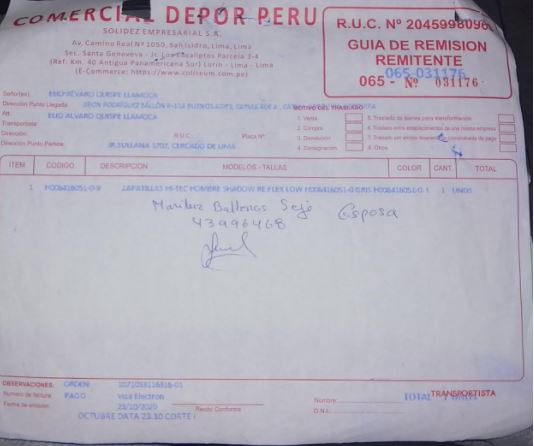 COMERCIAL DEPOR PERU
SOLIDEZ EMPRESARIAL S.A.
Av. Camino Real Nº 1050, San Isidro, Lima, Lima
Sec. Santa Genoveva - Jr. Los Eucaliptos Parcela 2-4
(Ref: Km. 40 Antigua Panamericana Sur) Lurin - Lima - Lima
(E-Commerce: https://www.coliseum.com.pe)
R.U.C. Nº 2045998096
GUIA DE REMISION
REMITENTE
065-031176
065 - Nº 031176
Señor(es)
QUISPE LLAMOCA
Dirección Punto Llegada
Att.
ELIO ALVARO QUISPE LLAMOCA
Transportista
Dirección R.U.C. Placa Nº
Dirección Punto Partida
JR.SULLANA 1702, CERCADO DE LIMA
MOTIVO DEL TRASLADO
1. Venta
2. Compra
3. Devolución
4. Consignación
5. Traslado de bienes para transformación
6. Traslado entre establecimientos de una misma empresa
8. Otros
ITEM CODIGO DESCRIPCION MODELOS - TALLAS COLOR CANT. TOTAL
1 H006416051-0-9 ZAPATILLAS HI-TEC HOMBRE SHADOW RE FLEX LOW H006416051-0 GRIS H006416051-0 1 UNIDS
Mariluz
Esposa
43996468
OBSERVACIONES: ORDEN 1071053116316-01
Número de factura: PAGO Visa Electron
Fecha de emisión: 23/10/2020
OCTUBRE DATA 23.10 CORTE
Recibí Conforme
Nombre
D.N.I.
TOTAL
TRANSPORTISTA